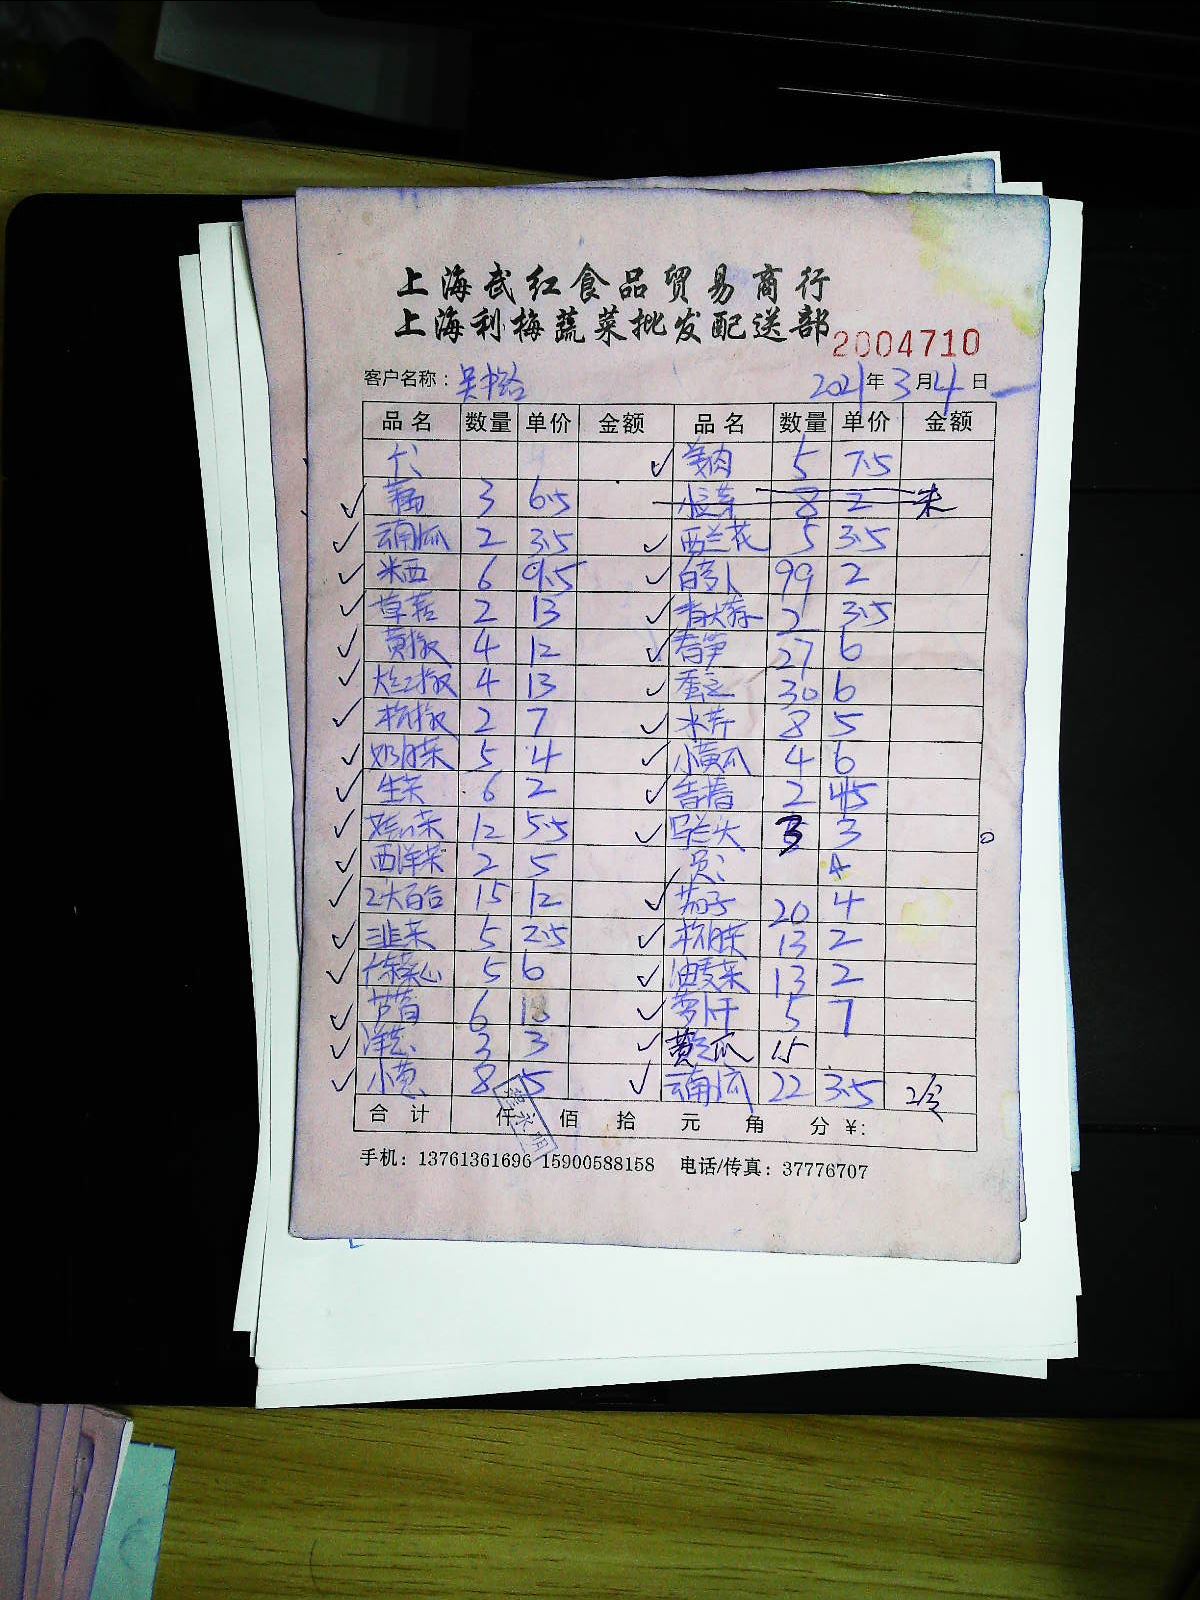 上海武红食品贸易商行
上海利梅蔬菜批发配送部
2004710
客户名称： 2021年3月4日
品名 数量 单价 金额 品名 数量 单价 金额
5 7.5
3 6.5 小豆芽 8 2 未
云南瓜 2 3.5 西兰花 5 3.5
米西 6 9.5 白萝卜 99 2
草菇 2 13 青大蒜 2 3.5
黄椒 4 12 春笋 27 6
大红椒 4 13 蚕豆 30 6
杭椒 2 7 水芹 8 5
奶白菜 5 4 小黄瓜 4 6
生菜 6 2 2 4.5
12 5.5 马兰头 3 3
西洋菜 2 5
大百合 15 12 茄子 20 4
韭菜 5 2.5 杭白菜 13 2
菜心 5 6 油麦菜 13 2
6 萝卜干 5 7
洋葱 3 3 黄瓜 15
小黄 8 5 云南瓜 22 3.5
合计 仟 佰 拾 元 角 分 ¥：
手机：13761361696 15900588158 电话/传真：37776707